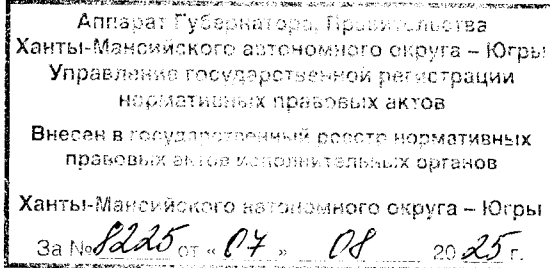 Аппарат Губернатора, Правительства
Ханты-Мансийского автономного округа – Югры
Управление государственной регистрации
нормативных правовых актов
Внесен в государственный реестр нормативных
правовых актов исполнительных органов
Ханты-Мансийского автономного округа – Югры
За № 8225 от « 07 » 08 20 25 г.